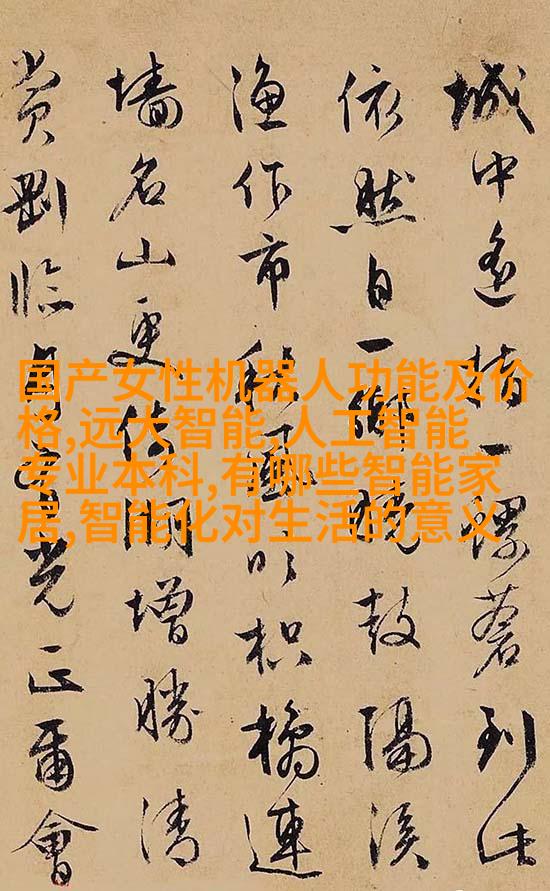 城中遙指一螺蒼到此
依然自一鄉曉鼓隔溪
漁作市枳橘連
墻名山更湖增勝清
賞剛臨光正爾會
国产女性机器人功能及价
格,远大智能,人工智能
专业本科,有哪些智能家
居,智能化对生活的意义